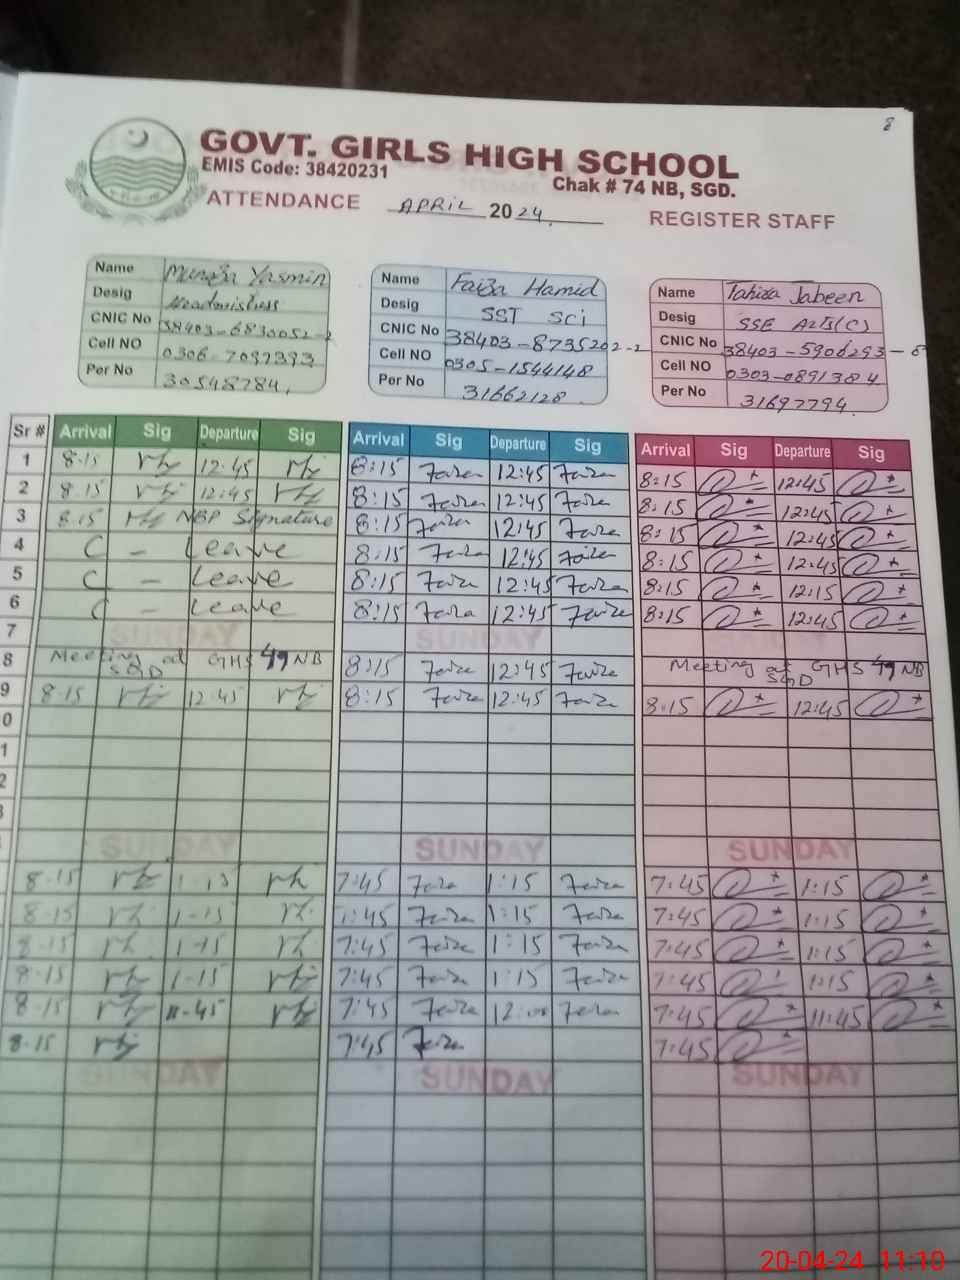 8
GOVT. GIRLS HIGH SCHOOL
EMIS Code: 38420231
Chak # 74 NB, SGD.
ATTENDANCE APRIL 2024 REGISTER STAFF
Name Yasmin Name Faiza Hamid Name Tahira Jabeen
Desig Headmistress Desig SST Sci Desig SSE Arts(C)
CNIC No 38403-6830052-2 CNIC No 38403-8735202-2 CNIC No 38403-5906293-8
Cell NO 0306-7097393 Cell NO 0305-1544148 Cell NO 0303-0891384
Per No 30548784, Per No 31662128 Per No 31697794.
Sr # Arrival Sig Departure Sig Arrival Sig Departure Sig Arrival Sig Departure Sig
1 8-15 12-45 8:15 Faiza 12:45 Faiza 8:15 12:45
2 8-15 12-45 8:15 Faiza 12:45 Faiza 8:15 12:45
3 8-15 NBP Signature 8:15 Faiza 12:45 Faiza 8:15 12:45
4 C - Leave 8:15 Faiza 12:45 Faiza 8:15 12:45
5 C - Leave 8:15 Faiza 12:45 Faiza 8:15 12:15
6 C - Leave 8:15 Faiza 12:45 Faiza 8:15 12:45
7 SUNDAY SUNDAY SUNDAY
8 Meeting at GHS 49 NB SGD 8:15 Faiza 12:45 Faiza Meeting at GHS 49 NB SGD
9 8-15 12-45 8:15 Faiza 12:45 Faiza 8:15 12:45
0
1
2
3
SUNDAY SUNDAY SUNDAY
8-15 1-15 7:45 Faiza 1:15 Faiza 7:45 1:15
8-15 1-15 7:45 Faiza 1:15 Faiza 7:45 1:15
8-15 1-15 7:45 Faiza 1:15 Faiza 7:45 1:15
8-15 1-15 7:45 Faiza 1:15 Faiza 7:45 1:15
8-15 11-45 7:45 Faiza 12:00 Faiza 7:45 11:45
8-15 7:45 Faiza 7:45
SUNDAY SUNDAY SUNDAY
20-04-24 11:10